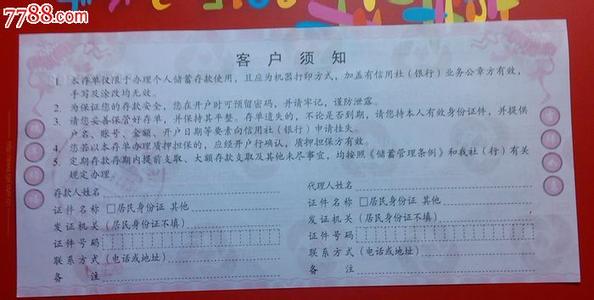 7788.com
客户须知
1. 本存单仅限于办理个人储蓄存款使用，且应为机器打印方式，加盖有信用社（银行）业务公章方有效，
手写及涂改均无效。
2. 为保证您的存款安全，您在开户时可预留密码，并请牢记，谨防泄露。
3. 请您妥善保管好存单，并保持其平整。存单遗失的，不论是否到期，请您持本人有效身份证件，并提供
户名、账号、金额、开户日期等要素向信用社（银行）申请挂失。
4. 您若以本存单办理质押担保的，应经开户行确认，质押担保方有效。
5. 定期存款存期内提前支取、大额存款支取及其他未尽事宜，均按照《储蓄管理条例》和我社（行）有关
规定办理。
存款人姓名 代理人姓名
证件名称 □居民身份证 其他 证件名称 □居民身份证 其他
发证机关（居民身份证不填） 发证机关（居民身份证不填）
证件号码 证件号码
联系方式（电话或地址） 联系方式（电话或地址）
备注 备注